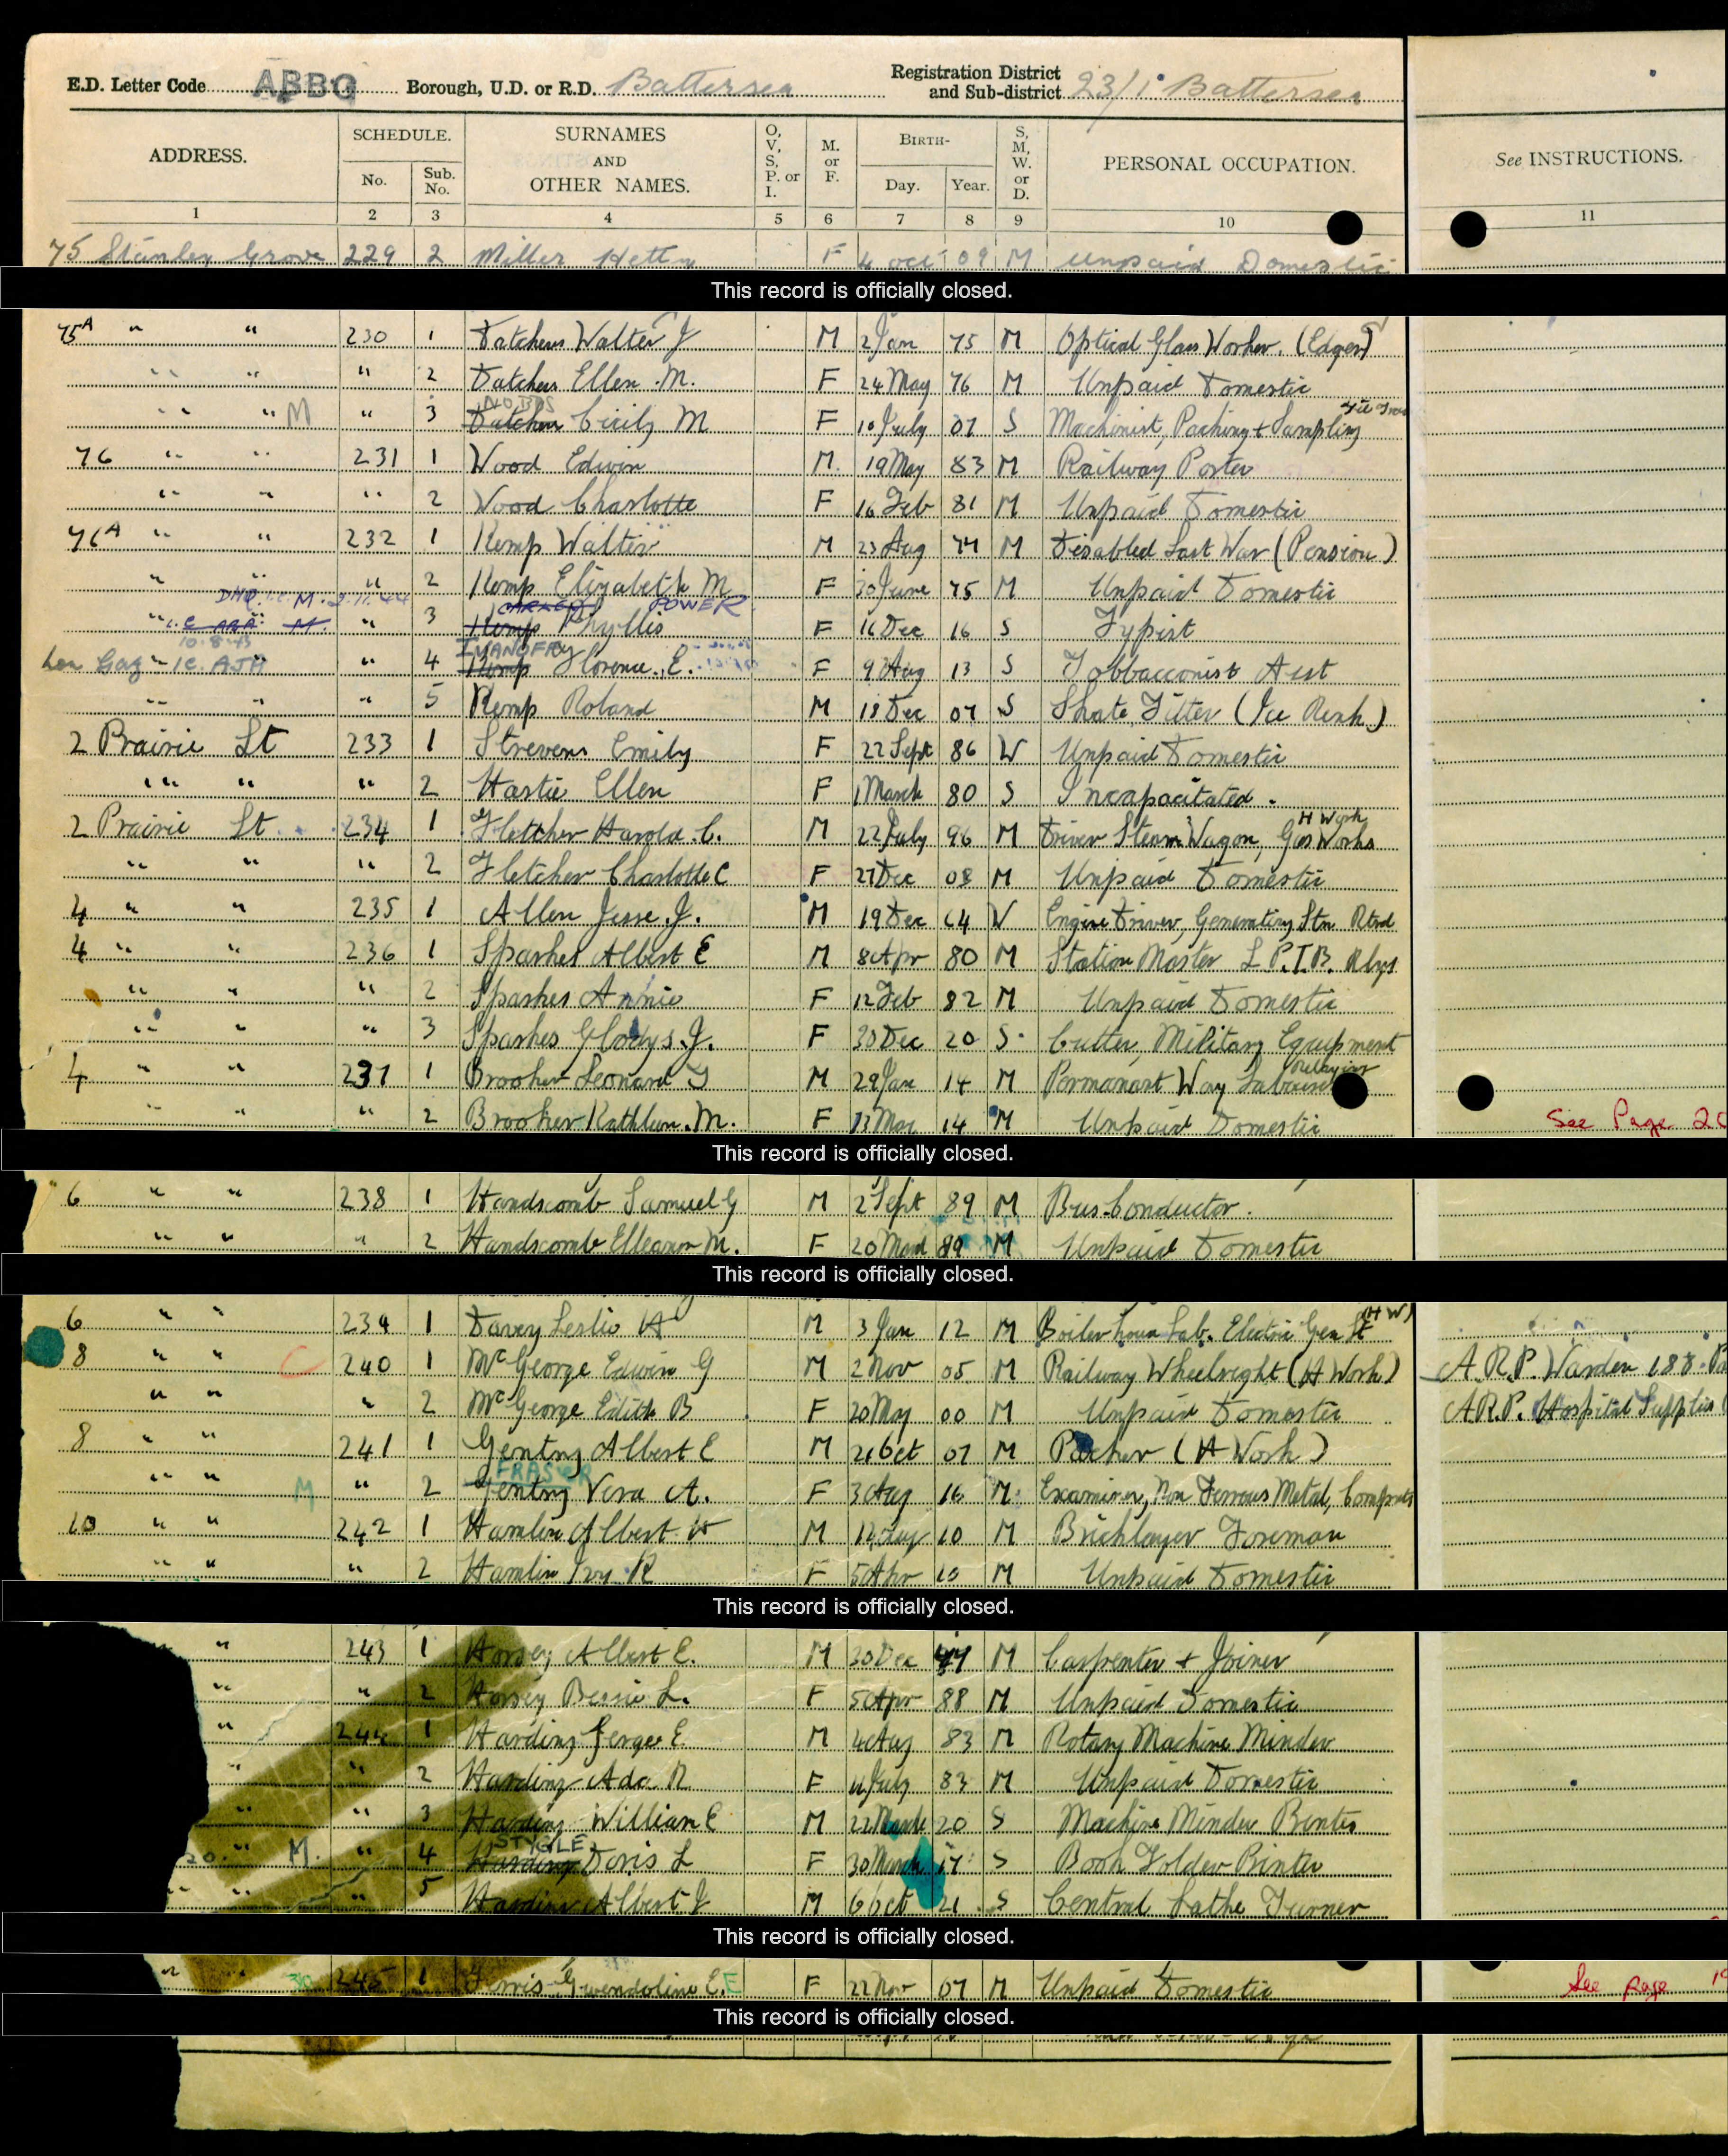 E.D. Letter Code ABBQ Borough, U.D. or R.D. Battersea Registration District and Sub-district 23/1 Battersea
ADDRESS. SCHEDULE. No. Sub. No. SURNAMES AND OTHER NAMES. O, V, S, P. or I. M. or F. BIRTH- Day. Year. S, M, W. or D. PERSONAL OCCUPATION. See INSTRUCTIONS.
1 2 3 4 5 6 7 8 9 10 11
75 Stanley Grove 229 2 Miller Hetty F 4 Oct 09 M Unpaid Domestic
This record is officially closed.
75A " " 230 1 Datchens Walter J M 2 Jan 75 M Optical Glass Worker. (Edger)
" " " 2 Datchens Ellen M. F 24 May 76 M Unpaid Domestic
" " M " 3 Datchens Cicily M F 10 July 07 S Machinist, Packing + Sampling
76 " " 231 1 Wood Edwin M. 19 May 83 M Railway Porter
" " " 2 Wood Charlotte F 16 Feb 81 M Unpaid Domestic
76A " " 232 1 Kemp Walter M 23 Aug 74 M Disabled Last War (Pension)
" " " 2 Kemp Elizabeth M F 30 June 75 M Unpaid Domestic
POWER
" " 3 Kemp Phyllis F 16 Dec 16 S Typist
10.8.43
" 4 Kemp Florence. E. F 9 Aug 13 S Tobbacconist Asst
" " " 5 Kemp Roland M 18 Dec 07 S Skate Fitter (Ice Rink)
2 Prairie St 233 1 Strevens Emily F 22 Sept 86 W Unpaid Domestic
" " " 2 Hastie Ellen F 1 March 80 S Incapacitated.
H Work
2 Prairie St 234 1 Fletcher Harold. C. M 22 July 96 M Driver Steam Wagon, Gas Works
" " " 2 Fletcher Charlotte C F 27 Dec 08 M Unpaid Domestic
4 " " 235 1 Allen Jesse. J. M 19 Dec 64 W Engine Driver, Generating Stn Rtrd
4 " " 236 1 Sparkes Albert E M 8 Apr 80 M Station Master L.P.T.B. Rlys
" " " 2 Sparkes Annie F 12 Feb 82 M Unpaid Domestic
" " " 3 Sparkes Gladys. J. F 30 Dec 20 S. Cutter, Military Equipment
Relaying
4 " " 237 1 Brooker Leonard J M 29 Jan 14 M Permanant Way Labourer
" " " 2 Brooker Kathleen. M. F 13 Mar 14 M Unpaid Domestic See Page 20
This record is officially closed.
6 " " 238 1 Handscomb Samuel G M 2 Sept 89 M Bus Conductor.
" " " 2 Handscomb Elleanor M. F 20 Mar 89 M Unpaid Domestic
This record is officially closed.
(H W)
6 " " 239 1 Davey Leslie A M 3 Jan 12 M Boiler house Lab. Electric Gen St
8 " " C 240 1 McGeorge Edwin G M 2 Nov 05 M Railway Wheelwright (H Work) A.R.P. Warden 188
" " " 2 McGeorge Edith B F 20 May 00 M Unpaid Domestic A.R.P. Hospital Supplies
8 " " 241 1 Gentry Albert E M 21 Oct 07 M Packer (H Work)
FRASER
" " M " 2 Gentry Vera A. F 3 Aug 16 M Examiner, Non Ferrous Metal,
10 " " 242 1 Hamlin Albert M 10 M Bricklayer Foreman
" " " 2 Hamlin Ivy R F 5 Apr 10 M Unpaid Domestic
This record is officially closed.
" 243 1 Horsey Albert E. M 30 Dec M Carpenter + Joiner
" " 2 Horsey Bessie L. F 5 Apr 88 M Unpaid Domestic
" 244 1 Harding George E. M 4 Aug 83 M Rotary Machine Minder
" " 2 Harding Ada R F July 83 M Unpaid Domestic
" " 3 Harding William E M 22 March 20 S Machine Minder Printer
STYGLE
" M. " 4 Harding Doris L F 30 March 17 S Book Folder Printer
" " " 5 Harding Albert J M 6 Oct 21 S Central Lathe Turner
This record is officially closed.
" 245 1 Ferris Gwendoline E. E F 22 Nov 07 M Unpaid Domestic See page
This record is officially closed.